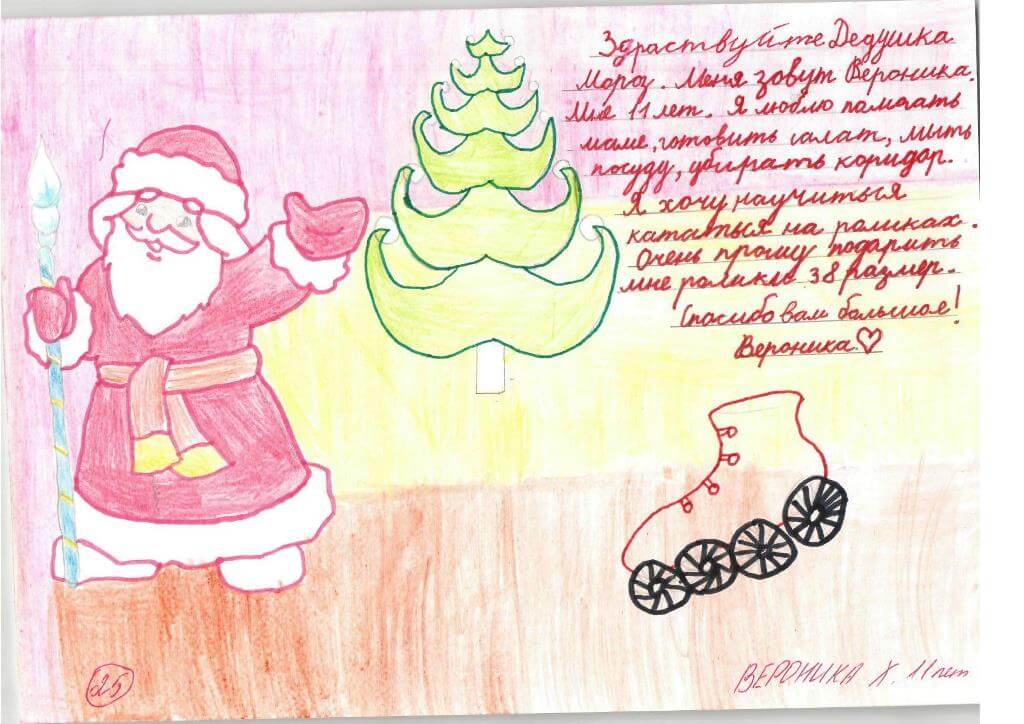 Здраствуйте Дедушка
Мороз. Меня зовут Вероника.
Мне 11 лет. Я люблю памагать
маме, готовить салат, мыть
посуду, убирать коридор.
Я хочу научиться
кататься на роликах.
Очень прошу подарить
мне ролики 38 размер.
Спасибо вам большое!
Вероника
25
ВЕРОНИКА Х. 11 лет